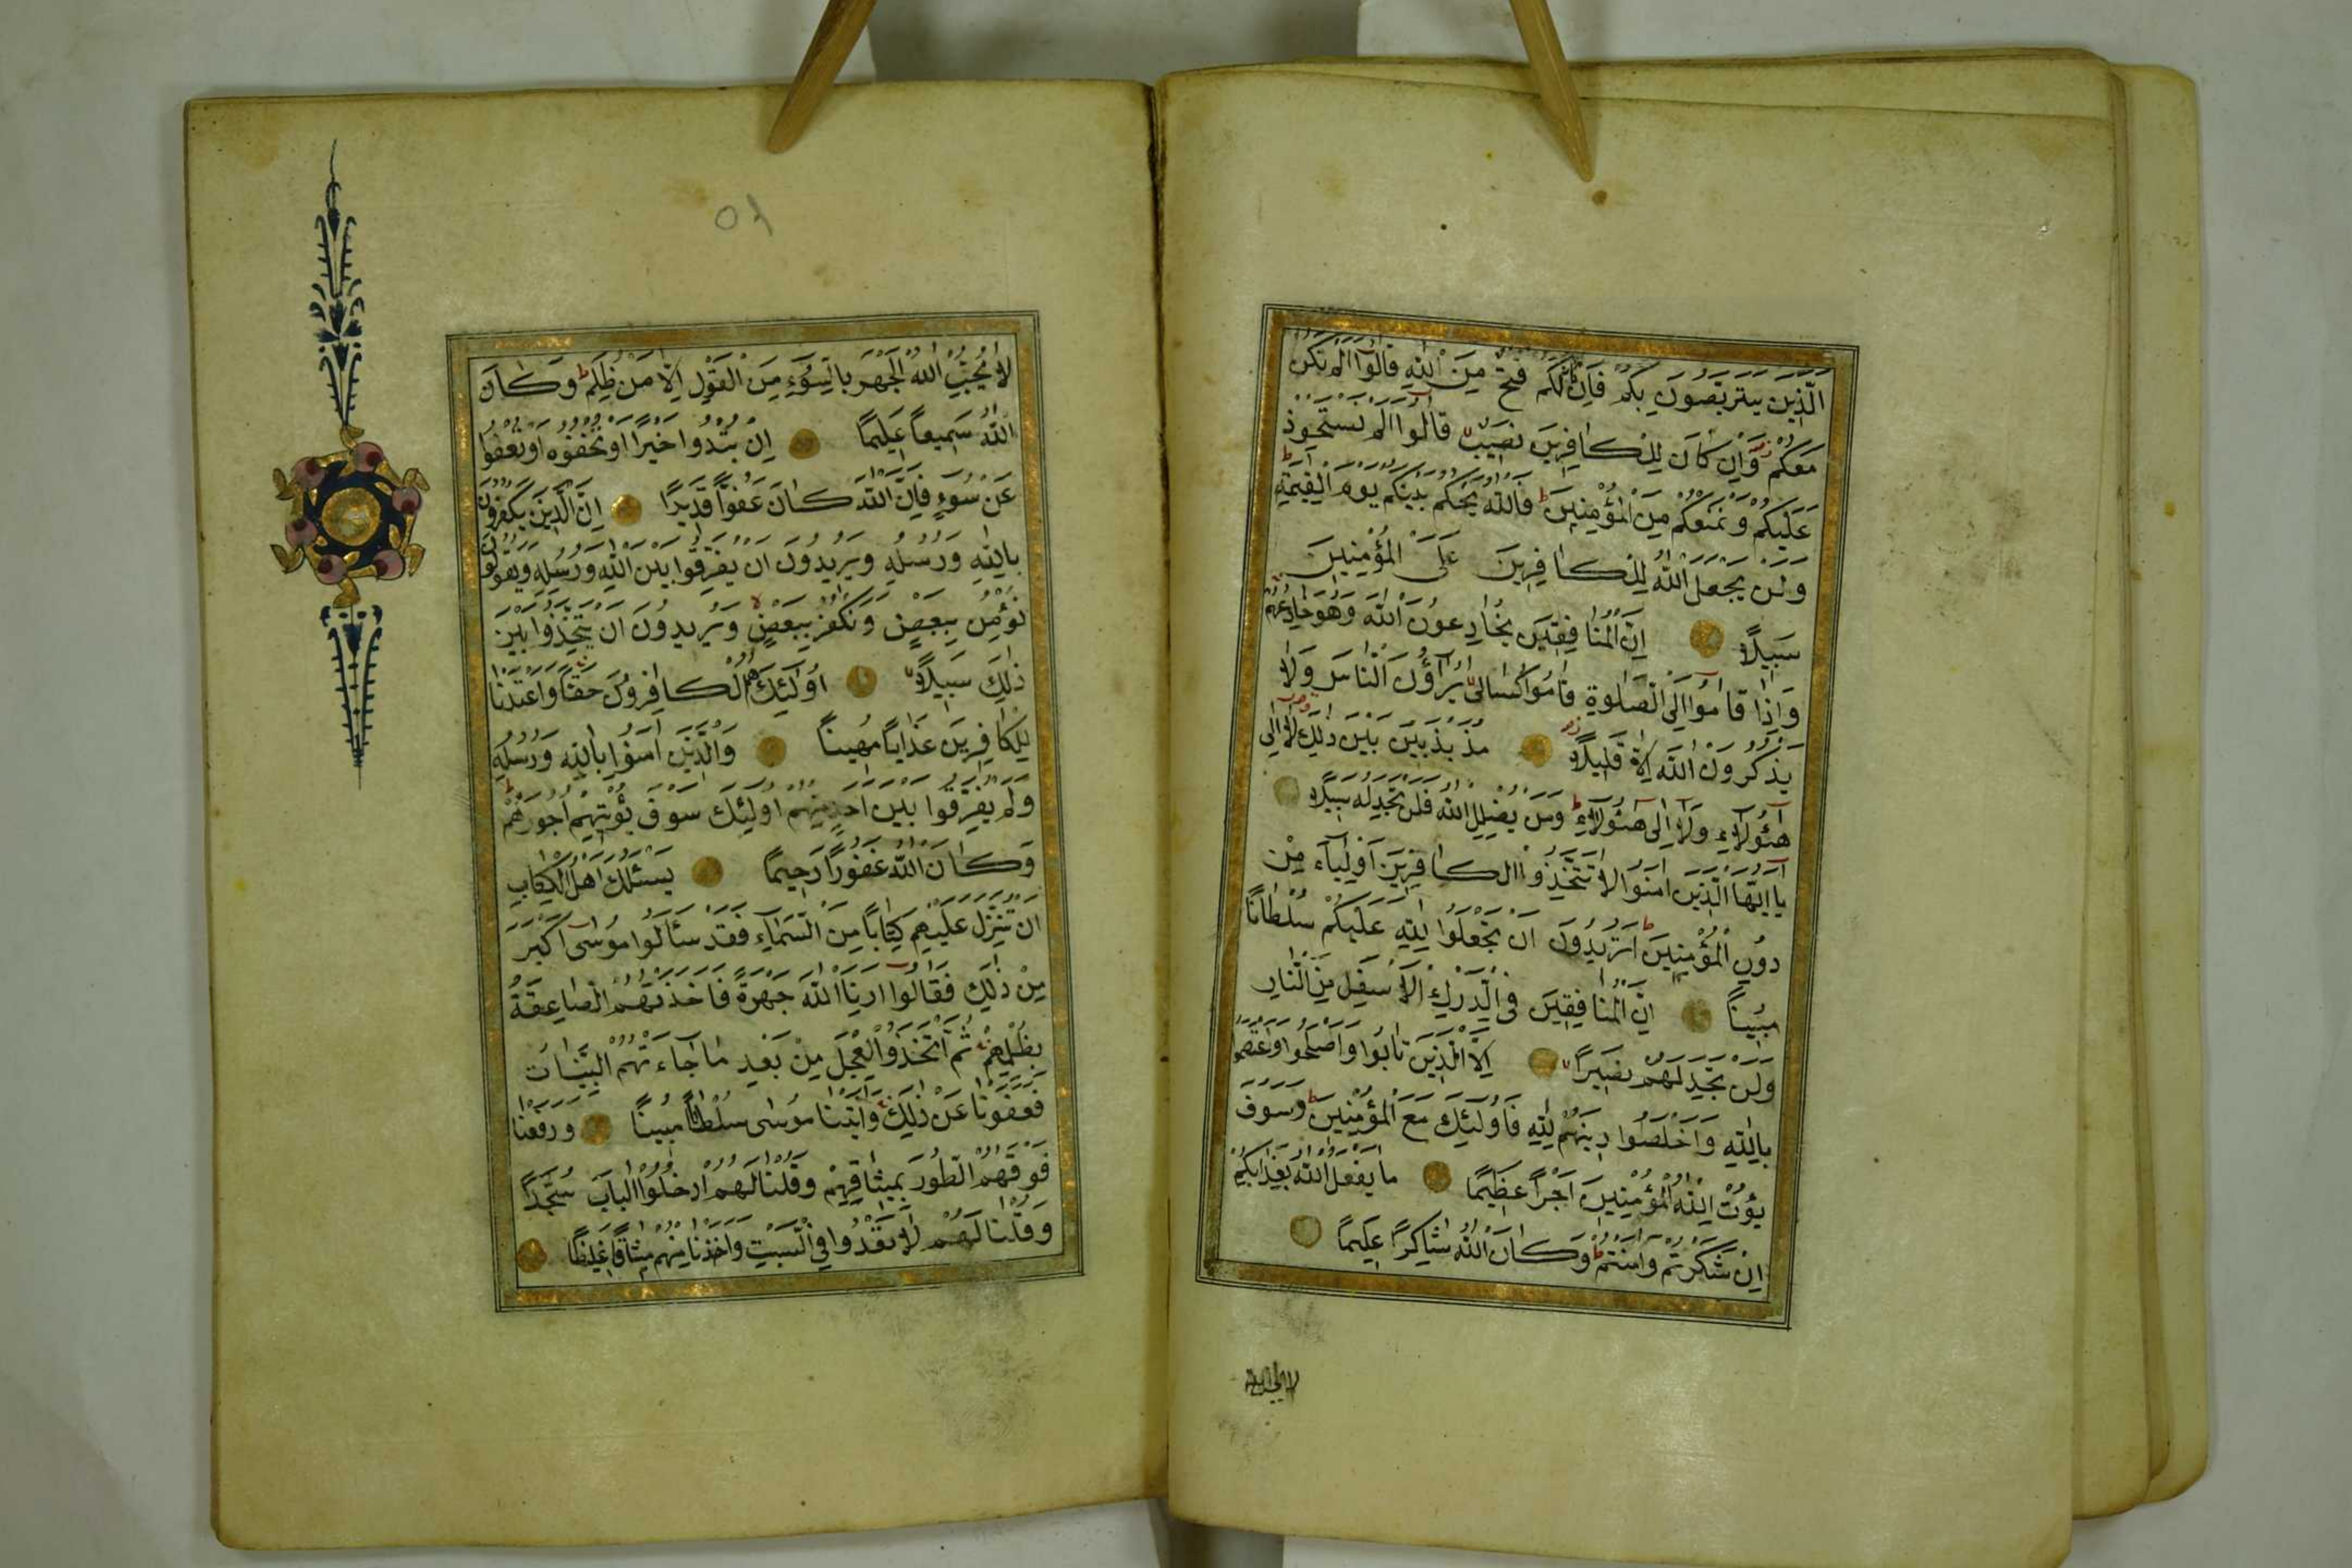 اَلَّذِينَ يَتَرَبَّصُونَ بِكُمْ فَاِنْ كَانَ لَكُمْ فَتْحٌ مِنَ اللّٰهِ قَالُوٓا اَلَمْ نَكُنْ
مَعَكُمْ وَاِنْ كَانَ لِلْكَافِرِينَ نَصِيبٌ قَالُوٓا اَلَمْ نَسْتَحْوِذْ
عَلَيْكُمْ وَنَمْنَعْكُمْ مِنَ الْمُؤْمِنِينَ فَاللّٰهُ يَحْكُمُ بَيْنَكُمْ يَوْمَ الْقِيٰمَةِ
وَلَنْ يَجْعَلَ اللّٰهُ لِلْكَافِرِينَ عَلَى الْمُؤْمِنِينَ
سَبِيلًا اِنَّ الْمُنَافِقِينَ يُخَادِعُونَ اللّٰهَ وَهُوَ خَادِعُهُمْ
وَاِذَا قَامُوٓا اِلَى الصَّلٰوةِ قَامُوا كُسَالٰى يُرَآؤُنَ النَّاسَ وَلَا
يَذْكُرُونَ اللّٰهَ اِلَّا قَلِيلًا مُذَبْذَبِينَ بَيْنَ ذٰلِكَ لَآ اِلٰى
هٰٓؤُلَآءِ وَلَآ اِلٰى هٰٓؤُلَآءِ وَمَنْ يُضْلِلِ اللّٰهُ فَلَنْ تَجِدَ لَهُ سَبِيلًا
يَآ اَيُّهَا الَّذِينَ اٰمَنُوا لَا تَتَّخِذُوا الْكَافِرِينَ اَوْلِيَآءَ مِنْ
دُونِ الْمُؤْمِنِينَ اَتُرِيدُونَ اَنْ تَجْعَلُوا لِلّٰهِ عَلَيْكُمْ سُلْطَانًا
مُبِينًا اِنَّ الْمُنَافِقِينَ فِى الدَّرْكِ الْاَسْفَلِ مِنَ النَّارِ
وَلَنْ تَجِدَ لَهُمْ نَصِيرًا اِلَّا الَّذِينَ تَابُوا وَاَصْلَحُوا وَاعْتَصَمُوا
بِاللّٰهِ وَاَخْلَصُوا دِينَهُمْ لِلّٰهِ فَاُولٰٓئِكَ مَعَ الْمُؤْمِنِينَ وَسَوْفَ
يُؤْتِ اللّٰهُ الْمُؤْمِنِينَ اَجْرًا عَظِيمًا مَا يَفْعَلُ اللّٰهُ بِعَذَابِكُمْ
اِنْ شَكَرْتُمْ وَاٰمَنْتُمْ وَكَانَ اللّٰهُ شَاكِرًا عَلِيمًا
لَا يُحِبُّ اللّٰهُ الْجَهْرَ بِالسُّوٓءِ مِنَ الْقَوْلِ اِلَّا مَنْ ظُلِمَ وَكَانَ
اللّٰهُ سَمِيعًا عَلِيمًا اِنْ تُبْدُوا خَيْرًا اَوْ تُخْفُوهُ اَوْ تَعْفُوا
عَنْ سُوٓءٍ فَاِنَّ اللّٰهَ كَانَ عَفُوًّا قَدِيرًا اِنَّ الَّذِينَ يَكْفُرُونَ
بِاللّٰهِ وَرُسُلِهِ وَيُرِيدُونَ اَنْ يُفَرِّقُوا بَيْنَ اللّٰهِ وَرُسُلِهِ وَيَقُولُونَ
نُؤْمِنُ بِبَعْضٍ وَنَكْفُرُ بِبَعْضٍ وَيُرِيدُونَ اَنْ يَتَّخِذُوا بَيْنَ
ذٰلِكَ سَبِيلًا اُولٰٓئِكَ هُمُ الْكَافِرُونَ حَقًّا وَاَعْتَدْنَا
لِلْكَافِرِينَ عَذَابًا مُهِينًا وَالَّذِينَ اٰمَنُوا بِاللّٰهِ وَرُسُلِهِ
وَلَمْ يُفَرِّقُوا بَيْنَ اَحَدٍ مِنْهُمْ اُولٰٓئِكَ سَوْفَ يُؤْتِيهِمْ اُجُورَهُمْ
وَكَانَ اللّٰهُ غَفُورًا رَحِيمًا يَسْئَلُكَ اَهْلُ الْكِتَابِ
اَنْ تُنَزِّلَ عَلَيْهِمْ كِتَابًا مِنَ السَّمَآءِ فَقَدْ سَأَلُوا مُوسٰٓى اَكْبَرَ
مِنْ ذٰلِكَ فَقَالُوٓا اَرِنَا اللّٰهَ جَهْرَةً فَاَخَذَتْهُمُ الصَّاعِقَةُ
بِظُلْمِهِمْ ثُمَّ اتَّخَذُوا الْعِجْلَ مِنْ بَعْدِ مَا جَآءَتْهُمُ الْبَيِّنَاتُ
فَعَفَوْنَا عَنْ ذٰلِكَ وَاٰتَيْنَا مُوسٰى سُلْطَانًا مُبِينًا وَرَفَعْنَا
فَوْقَهُمُ الطُّورَ بِمِيثَاقِهِمْ وَقُلْنَا لَهُمُ ادْخُلُوا الْبَابَ سُجَّدًا
وَقُلْنَا لَهُمْ لَا تَعْدُوا فِى السَّبْتِ وَاَخَذْنَا مِنْهُمْ مِيثَاقًا غَلِيظًا